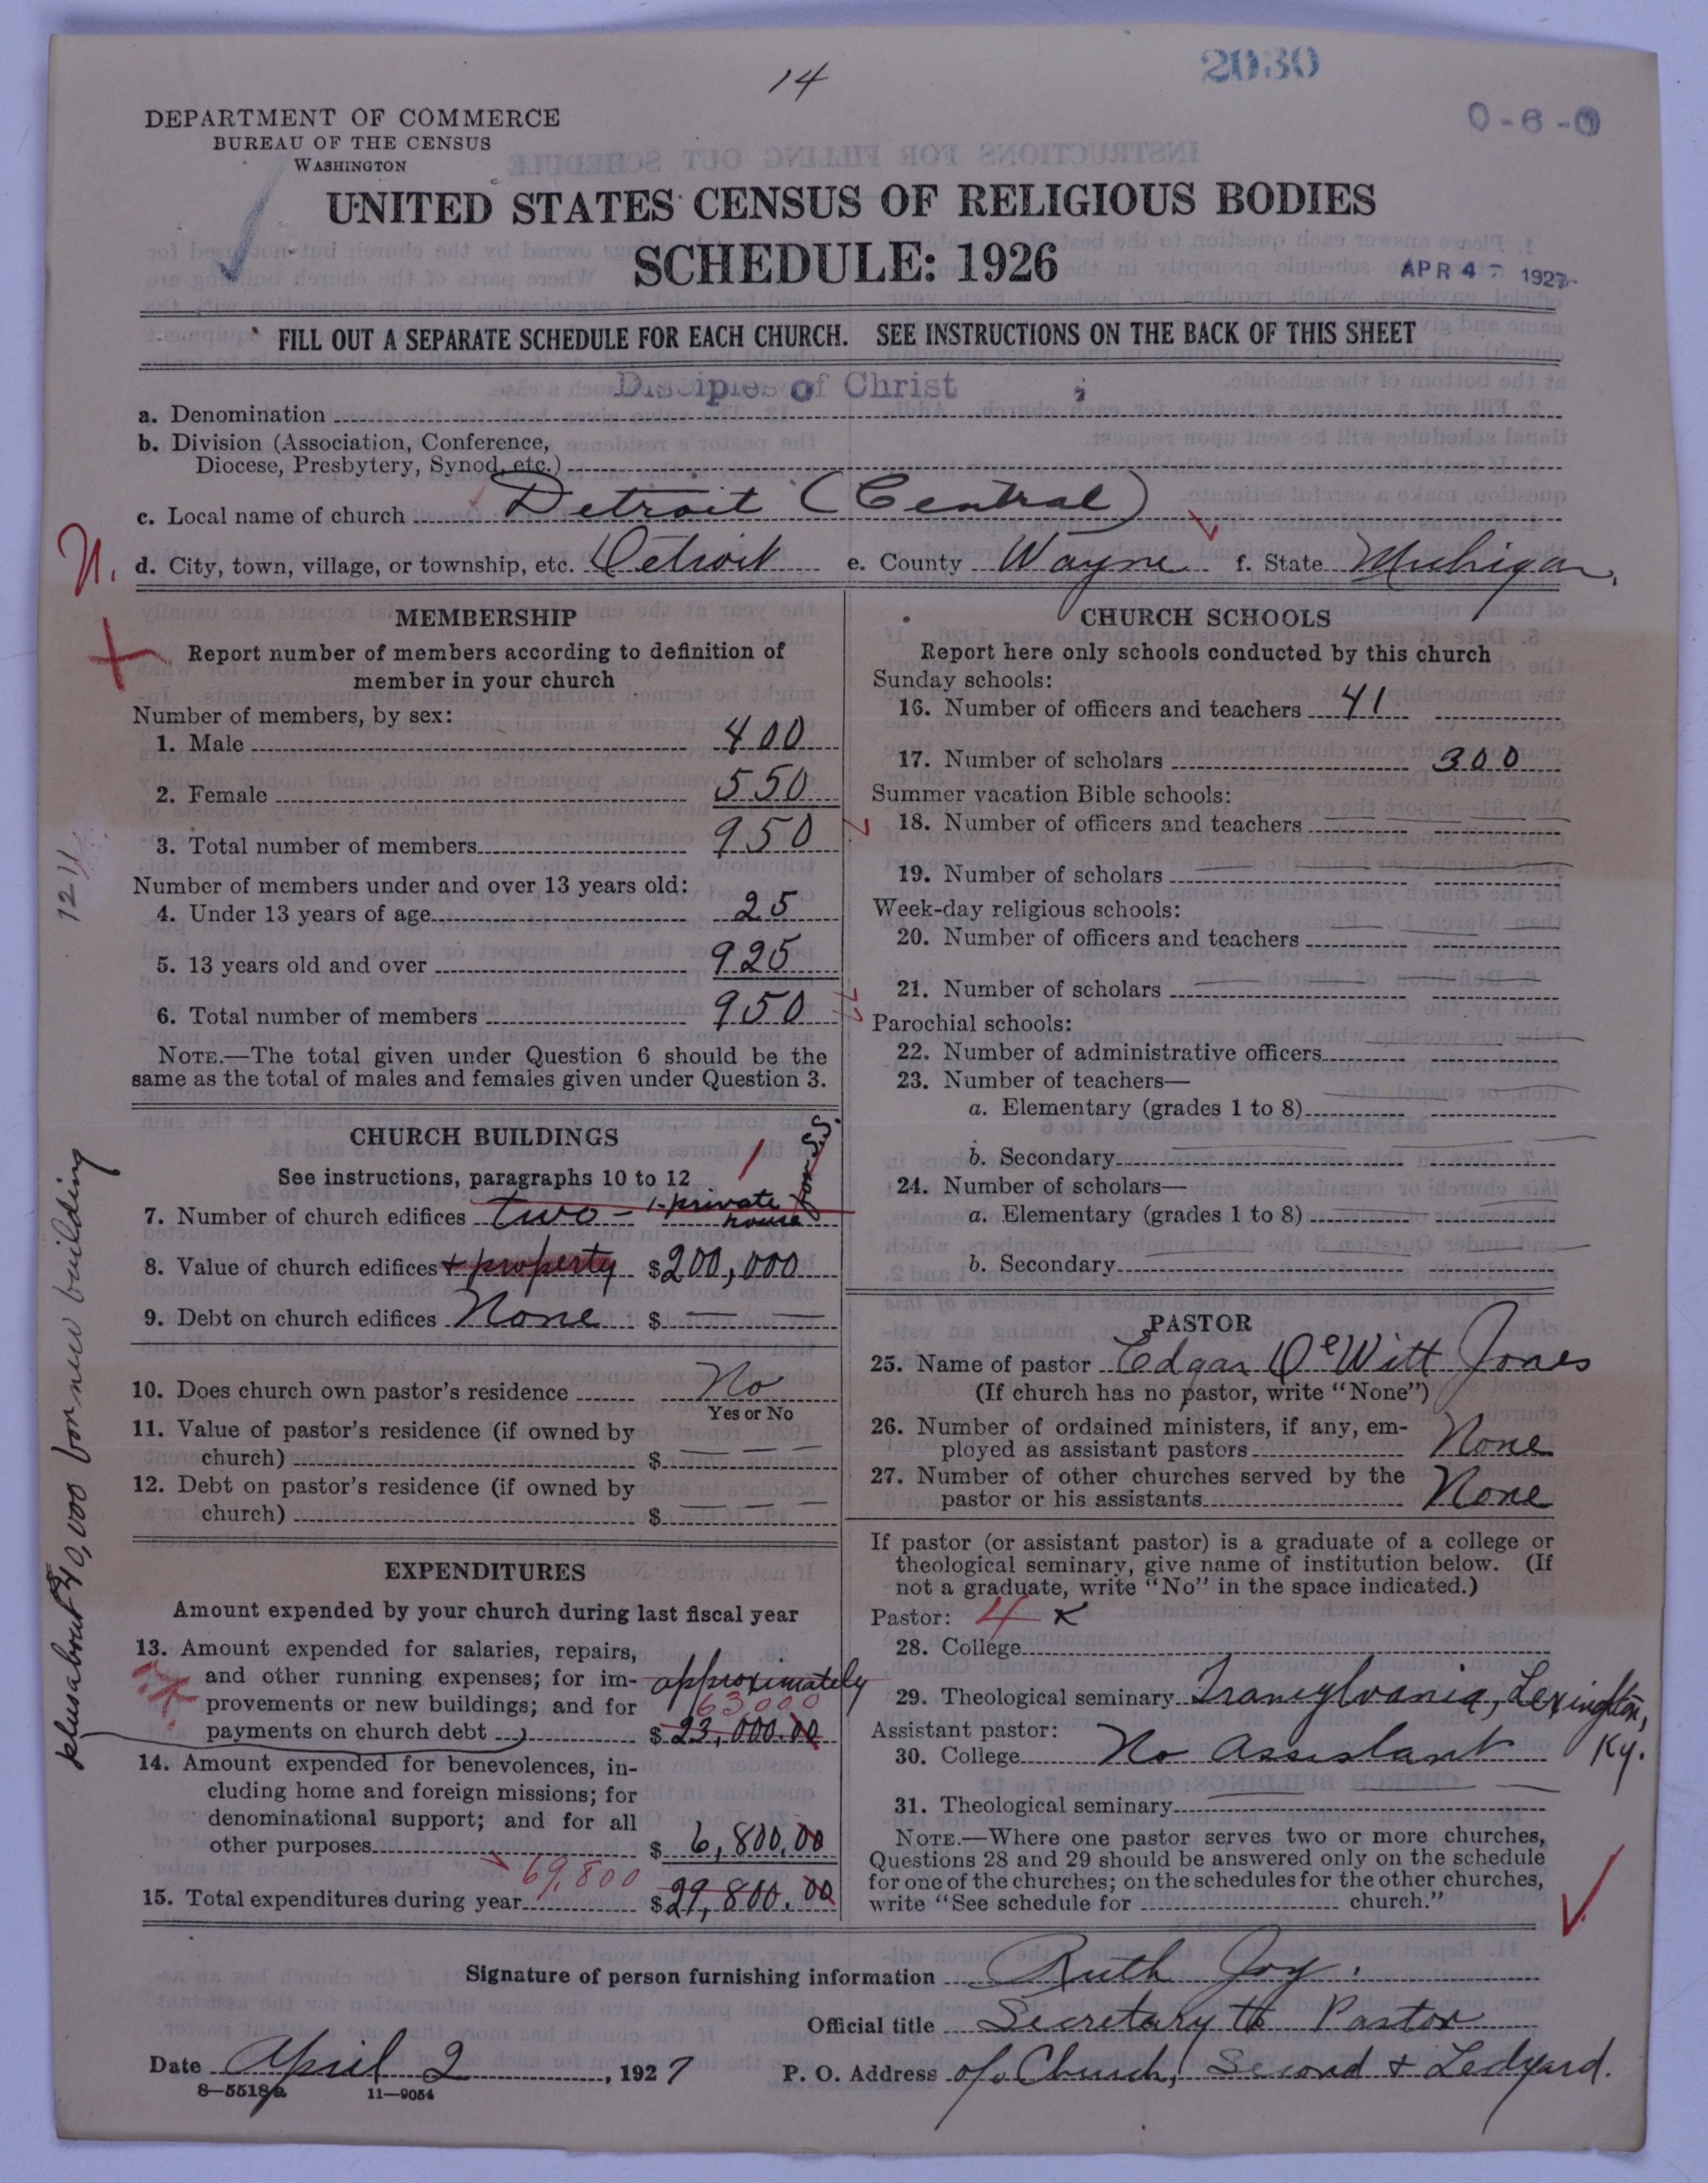 14
2030
0-6-0
DEPARTMENT OF COMMERCE
BUREAU OF THE CENSUS
WASHINGTON
UNITED STATES CENSUS OF RELIGIOUS BODIES
SCHEDULE: 1926
APR 4 - 1927
FILL OUT A SEPARATE SCHEDULE FOR EACH CHURCH. SEE INSTRUCTIONS ON THE BACK OF THIS SHEET
a. Denomination Disciples of Christ
b. Division (Association, Conference,
Diocese, Presbytery, Synod, etc.)
c. Local name of church Detroit (Central)
d. City, town, village, or township, etc. Detroit e. County Wayne f. State Michigan.
MEMBERSHIP
Report number of members according to definition of
member in your church
Number of members, by sex:
1. Male 400
2. Female 550
3. Total number of members 950
Number of members under and over 13 years old:
4. Under 13 years of age 25
5. 13 years old and over 925
6. Total number of members 950
NOTE.—The total given under Question 6 should be the
same as the total of males and females given under Question 3.
1211
CHURCH BUILDINGS
See instructions, paragraphs 10 to 12 1
7. Number of church edifices two - 1-private house for S.S.
8. Value of church edifices + property $200,000
9. Debt on church edifices None $ — —
10. Does church own pastor's residence No
Yes or No
11. Value of pastor's residence (if owned by
church) $ — — —
12. Debt on pastor's residence (if owned by
church) $ — — —
EXPENDITURES
Amount expended by your church during last fiscal year
13. Amount expended for salaries, repairs,
and other running expenses; for im-
provements or new buildings; and for
payments on church debt approximately 63000 $23,000.00
plus about $40,000 for new building
14. Amount expended for benevolences, in-
cluding home and foreign missions; for
denominational support; and for all
other purposes $ 6,800.00
69,800
15. Total expenditures during year $29,800.00
CHURCH SCHOOLS
Report here only schools conducted by this church
Sunday schools:
16. Number of officers and teachers 41
17. Number of scholars 300
Summer vacation Bible schools:
18. Number of officers and teachers
19. Number of scholars
Week-day religious schools:
20. Number of officers and teachers
21. Number of scholars
Parochial schools:
22. Number of administrative officers
23. Number of teachers—
a. Elementary (grades 1 to 8)
b. Secondary
24. Number of scholars—
a. Elementary (grades 1 to 8)
b. Secondary
PASTOR
25. Name of pastor Edgar DeWitt Jones
(If church has no pastor, write "None")
26. Number of ordained ministers, if any, em-
ployed as assistant pastors None
27. Number of other churches served by the
pastor or his assistants None
If pastor (or assistant pastor) is a graduate of a college or
theological seminary, give name of institution below. (If
not a graduate, write "No" in the space indicated.)
Pastor: 4 x
28. College
29. Theological seminary Transylvania, Lexington, Ky.
Assistant pastor:
30. College No Assistant
31. Theological seminary
NOTE.—Where one pastor serves two or more churches,
Questions 28 and 29 should be answered only on the schedule
for one of the churches; on the schedules for the other churches,
write "See schedule for church."
Signature of person furnishing information Ruth Joy.
Official title Secretary to Pastor
Date April 2, 1927 P. O. Address o/o Church, Second & Ledyard.
8—5518a 11—9054